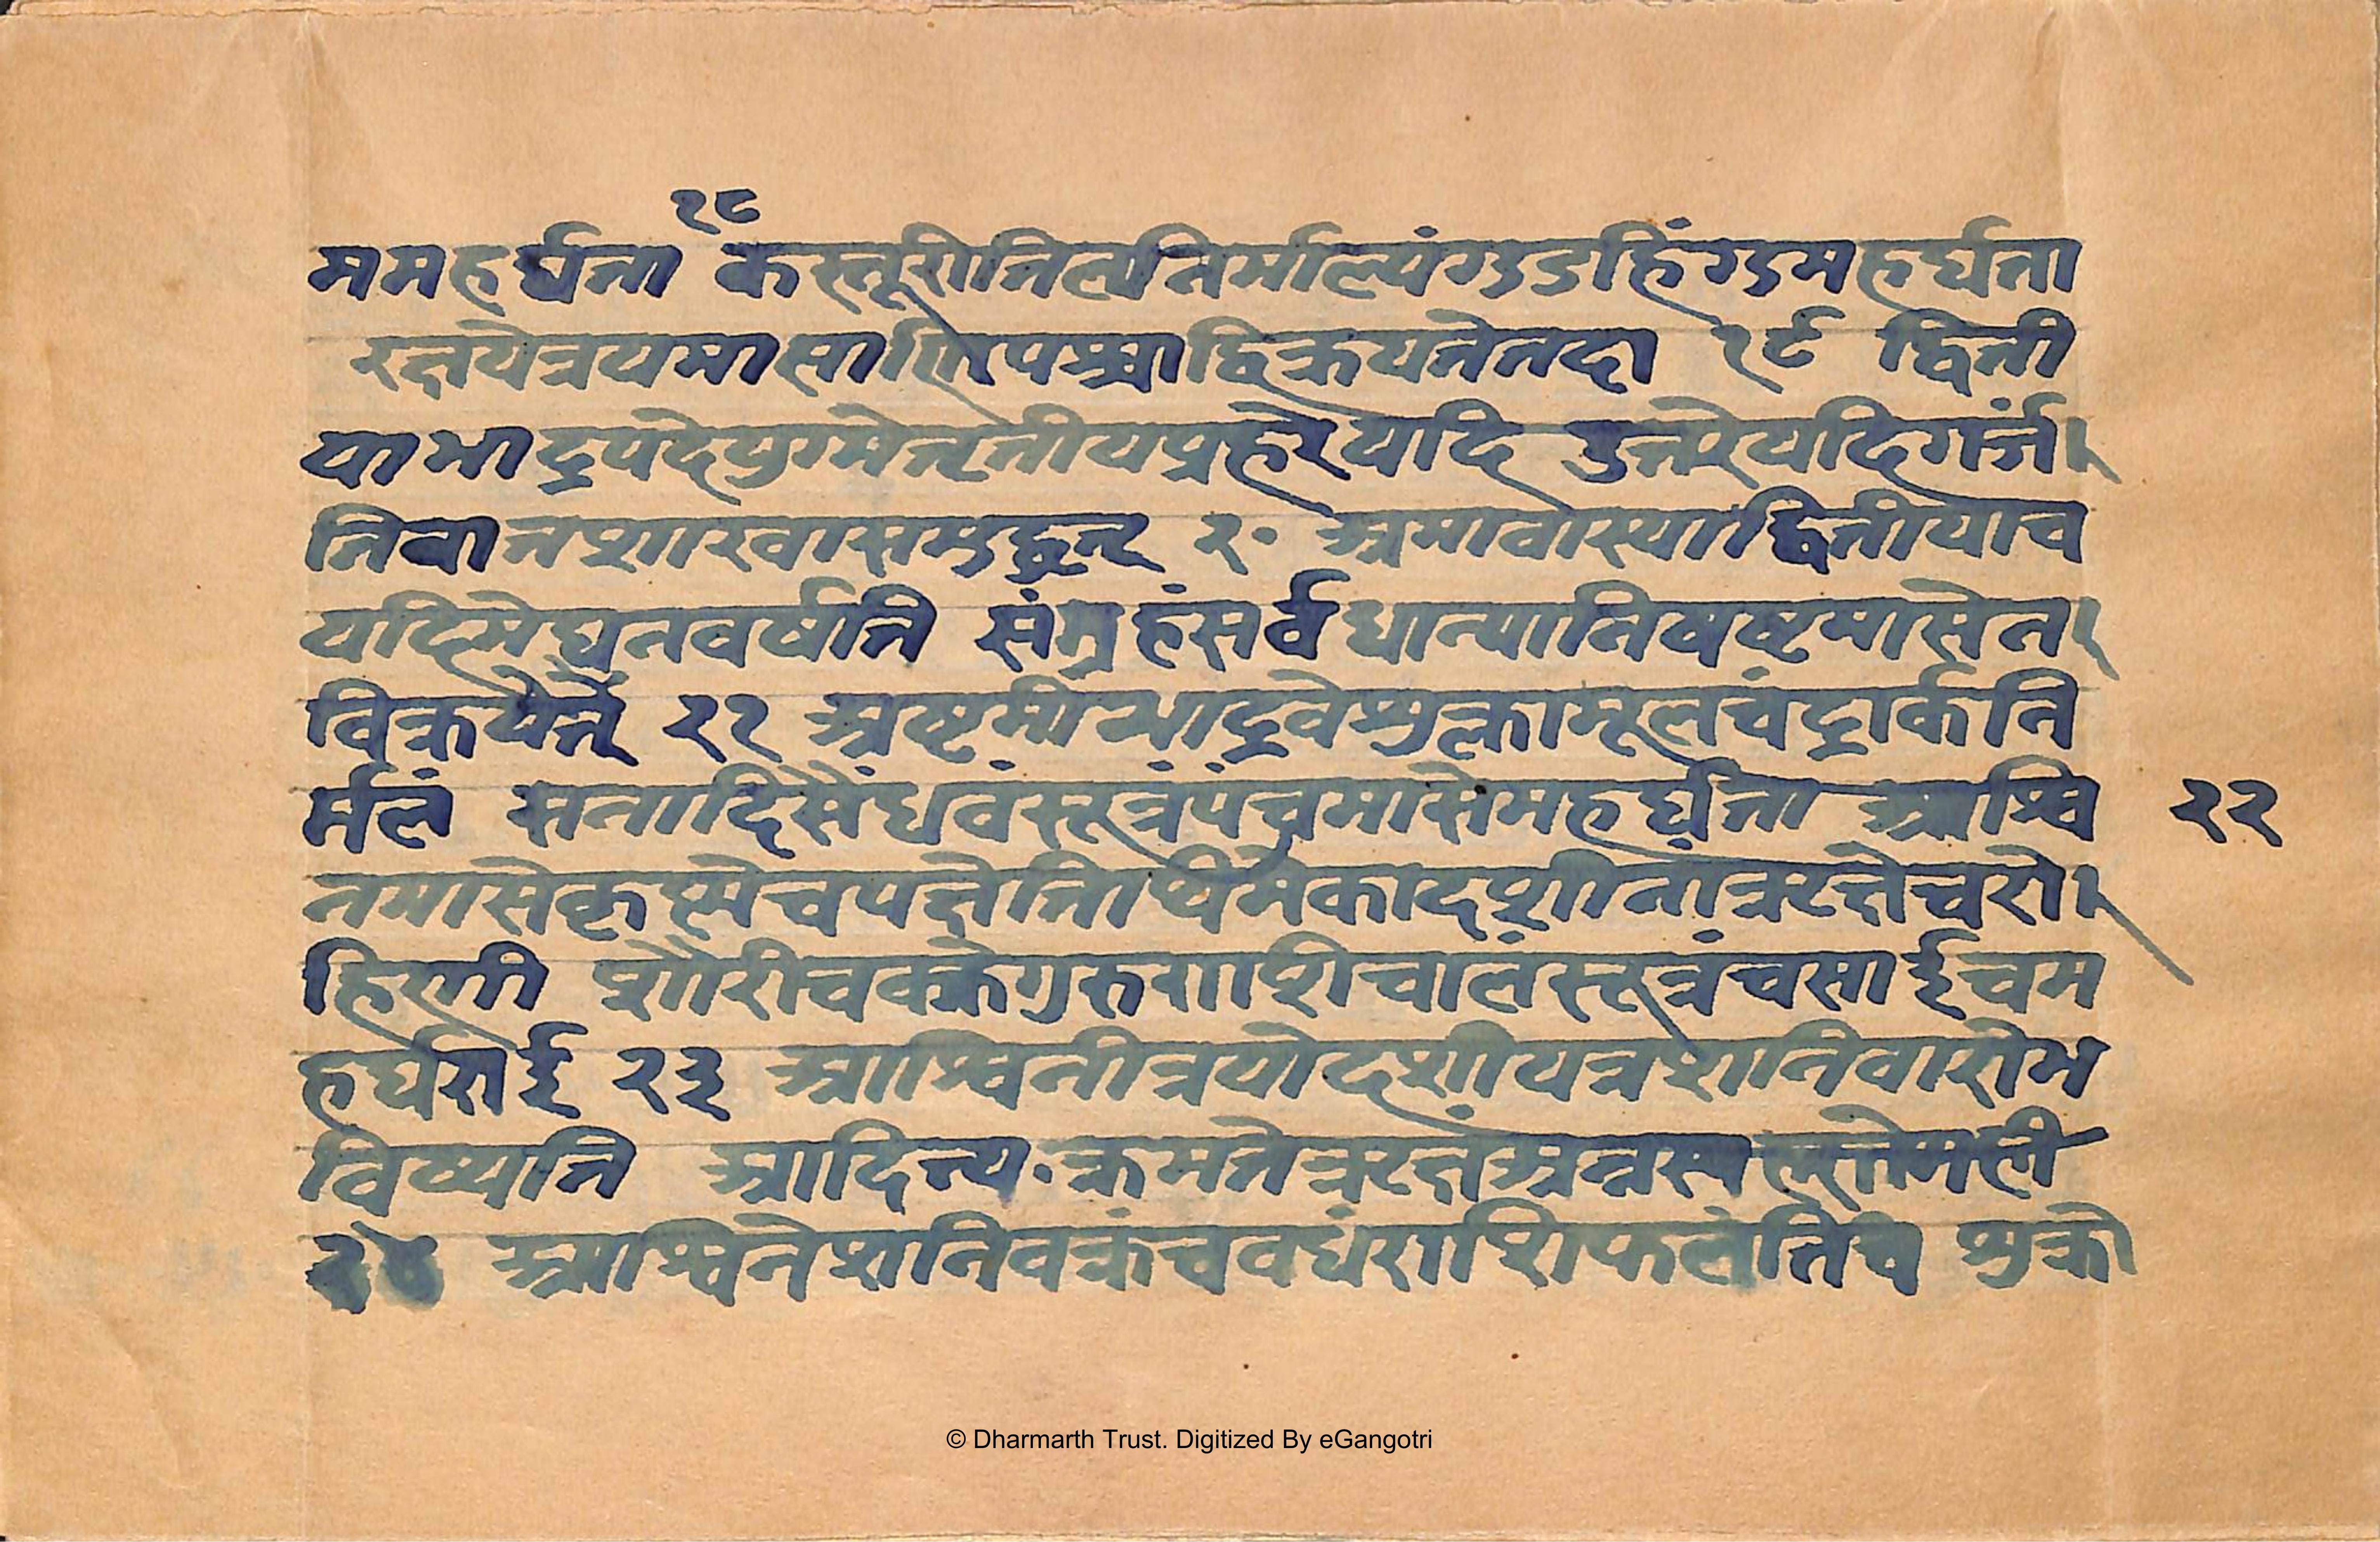 १८
ममहर्घता कस्तूरीतिलतिर्माल्यंगुडहिंगुमहर्घता
रक्षयेत्रयमासाणिपश्चाद्विक्रयतेतदा १९ द्विती
याभाद्रपदेयुग्मेतृतीयप्रहरेयदि युत्तरेयदिगर्जं
तिवातशाखासमुद्धृत् २० अमावास्याद्वितीयाच
यदिमेघनवर्षति संग्रहंसर्वधान्यानिषष्टमासेन
विक्रयेत् २१ अष्टमीभाद्रवेशुक्लामूलचंद्रार्कनि
र्मलं सतादिसैंधवंसूत्रंपंचमासेमहर्घता आश्वि २२
नमासेकृष्णेचपक्षेतिथिमेकादशीतांत्रटक्षेचरो
हिणी शौरीचवक्रेगुरुराशिचालंसूत्रंचसार्द्रचम
हर्घराई २३ आश्विनीत्रयोदशीयत्रशनिवारोभ
विष्यति आदित्य क्रमतेत्रटक्षंअन्नस्व
२४ आश्विनेशनिवक्रंचवधंराशिफलंतिच शुक्रो
© Dharmarth Trust. Digitized By eGangotri